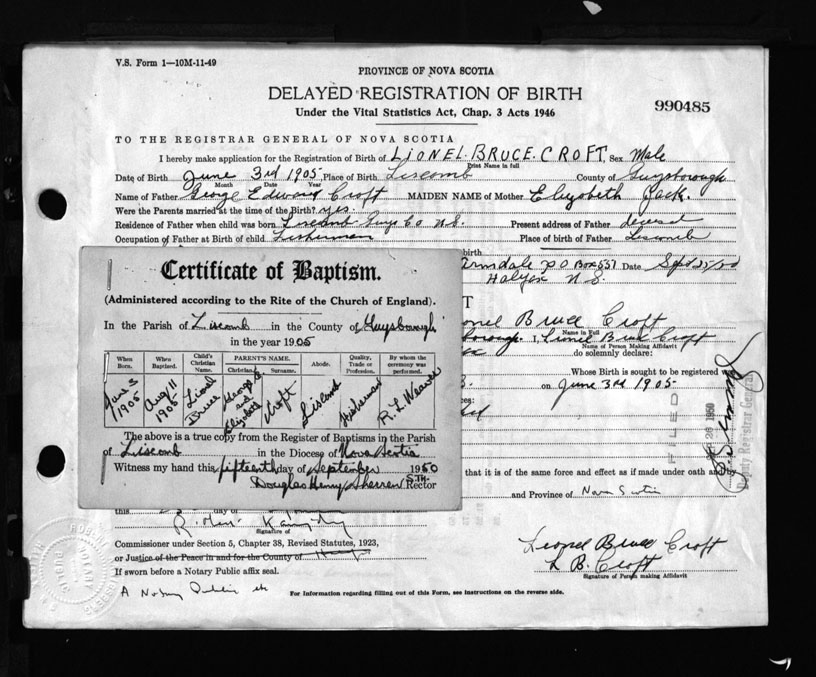 V.S. Form 1—10M-11-49
PROVINCE OF NOVA SCOTIA
DELAYED REGISTRATION OF BIRTH
Under the Vital Statistics Act, Chap. 3 Acts 1946
990485
TO THE REGISTRAR GENERAL OF NOVA SCOTIA
I hereby make application for the Registration of Birth of LIONEL BRUCE CROFT, Sex Male
Print Name in full
Date of Birth June 3rd 1905 Place of Birth Liscomb County of Guysborough
Month Date Year
Name of Father George Edward Croft MAIDEN NAME of Mother Elizabeth Jack.
Were the Parents married at the time of the Birth? yes.
Residence of Father when child was born Liscomb Guys Co N.S. Present address of Father
Occupation of Father at Birth of child Fisherman Place of birth of Father Liscomb
birth
Armdale P O Box 537 Date Sept 25/50
Halifax N.S.
Lionel Bruce Croft
Name in Full
I, Lionel Bruce Croft
Name of Person Making Affidavit
do solemnly declare:
Whose Birth is sought to be registered
on June 3rd 1905
FILED
1950
Deputy Registrar General
that it is of the same force and effect as if made under oath and by
and Province of Nova Scotia
Certificate of Baptism.
(Administered according to the Rite of the Church of England).
In the Parish of Liscomb in the County of Guysborough
in the year 1905
When Born. When Baptised. Child's Christian Name. PARENT'S NAME. Christian. Surname. Abode. Quality, Trade or Profession. By whom the ceremony was performed.
June 3 1905 Aug 11 1905 Lionel Bruce George E and Elizabeth Croft Liscomb Fisherman R. L. Weaver
The above is a true copy from the Register of Baptisms in the Parish
of Liscomb in the Diocese of Nova Scotia
Witness my hand this fifteenth day of September 1950
Douglas Henry Sherren S.TH. Rector
this day of
Signature of
Commissioner under Section 5, Chapter 38, Revised Statutes, 1923,
or Justice of the Peace in and for the County of
If sworn before a Notary Public affix seal.
A Notary Public etc
Lionel Bruce Croft
L B. Croft
Signature of Person making Affidavit
For Information regarding filling out of this Form, see instructions on the reverse side.